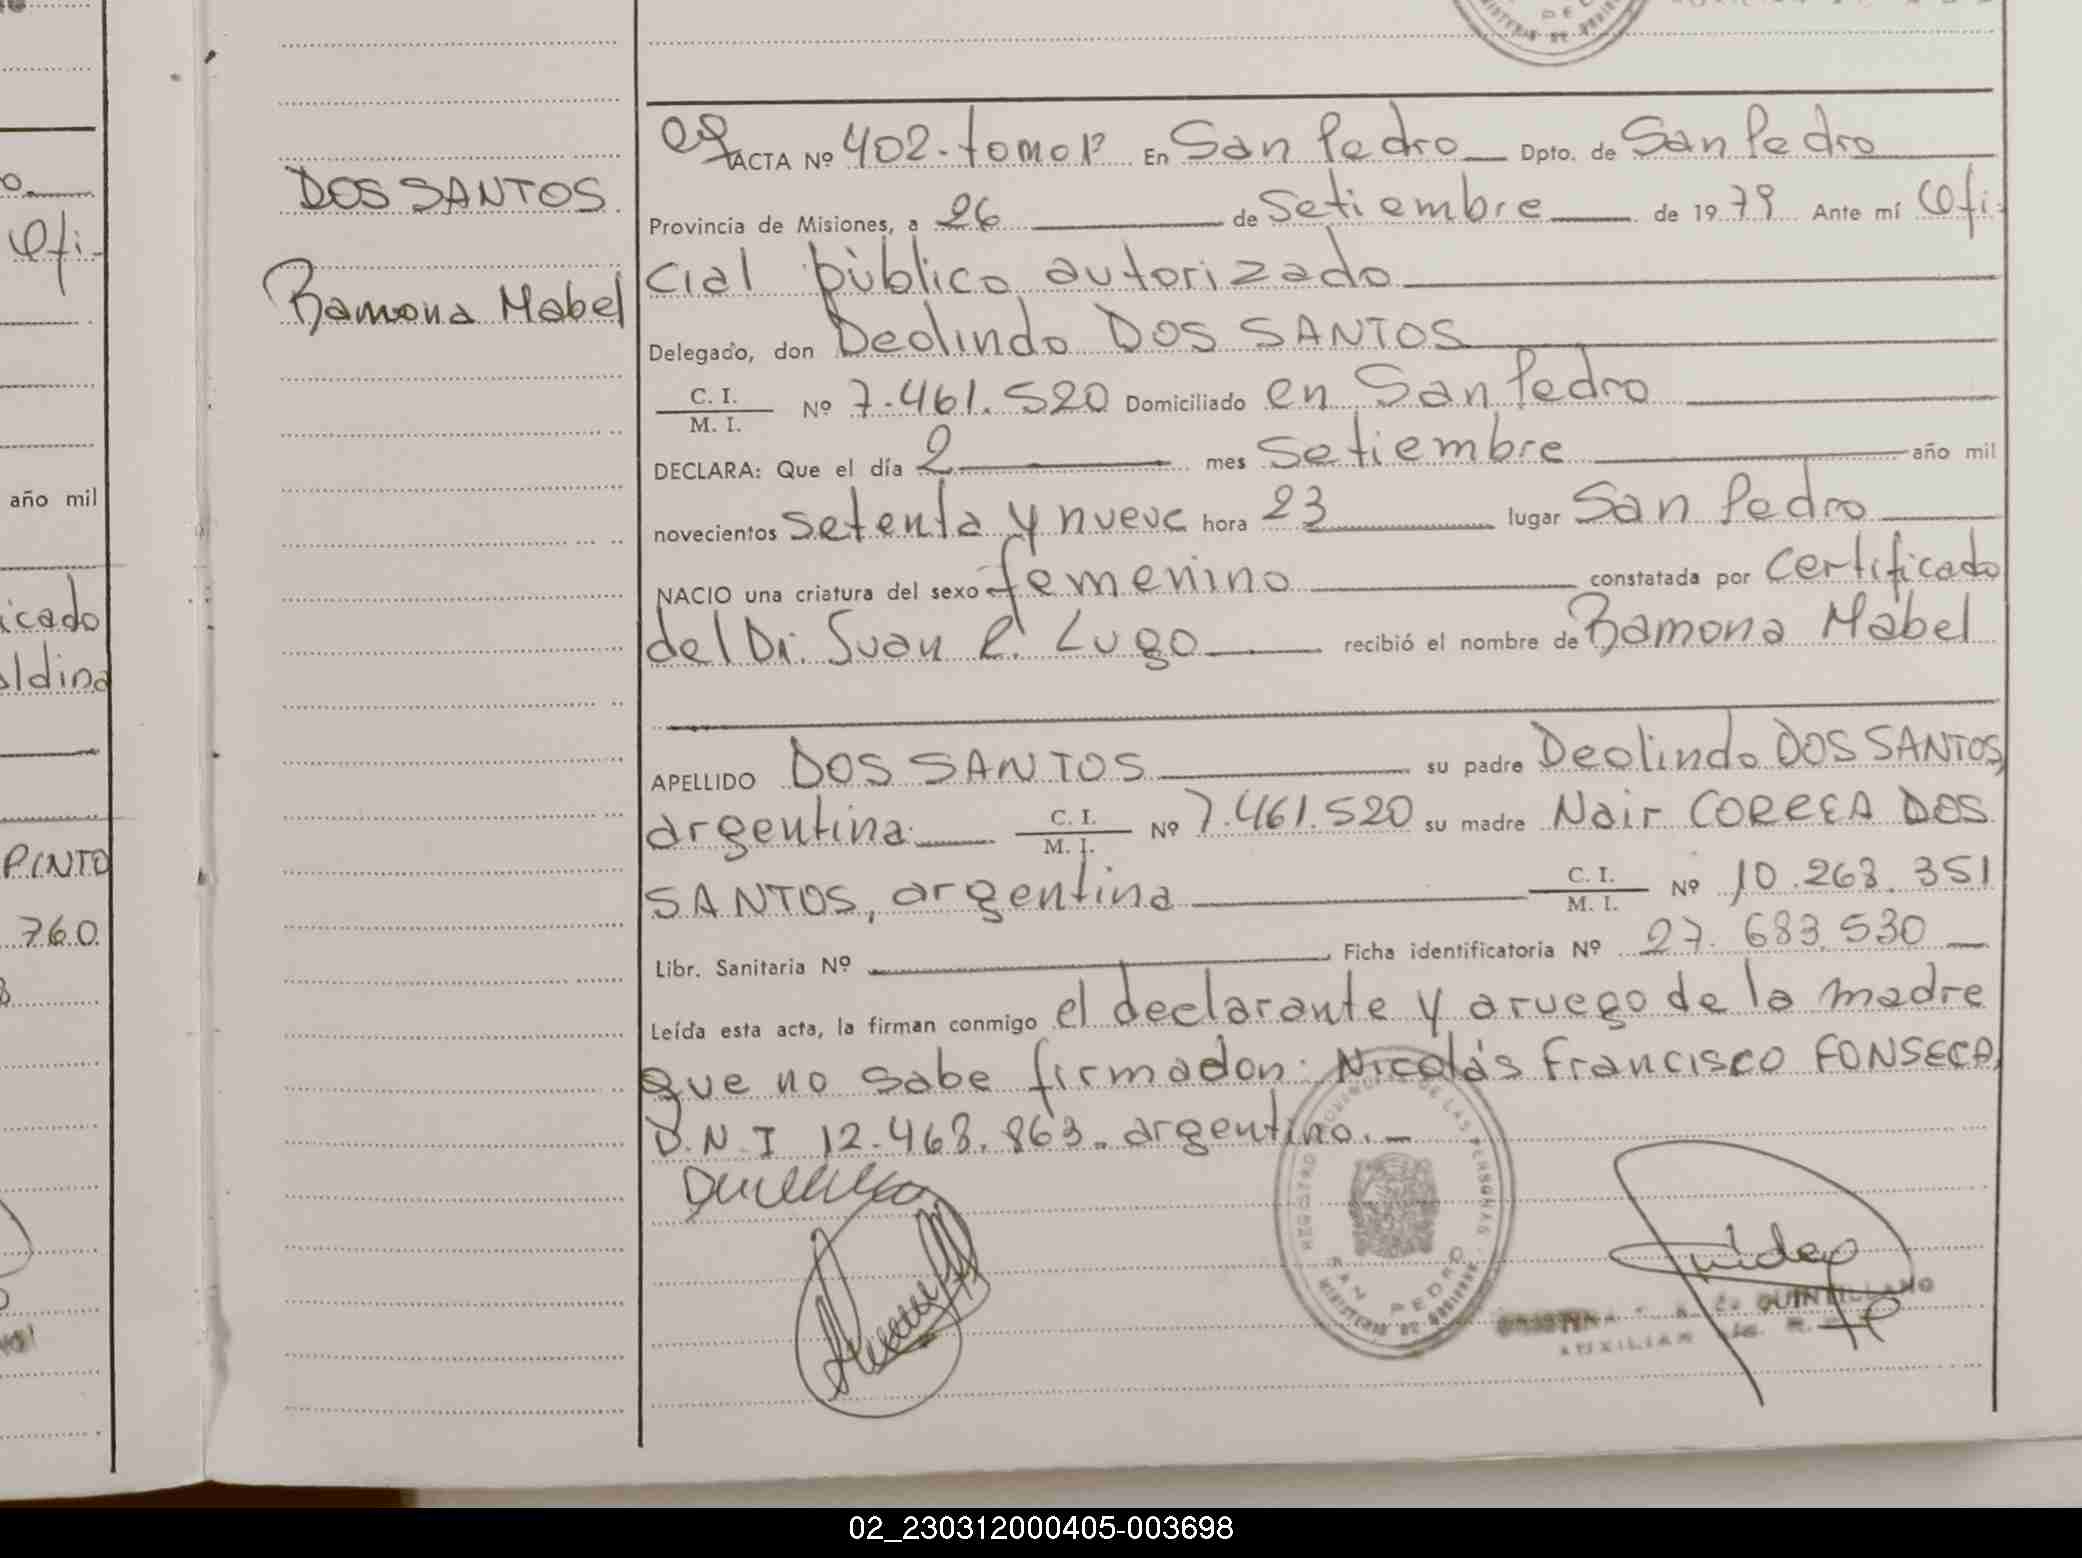 DE
MINISTERIO DE GOBIERNO
ACTA Nº 402-tomo 1º En San Pedro Dpto. de San Pedro
DOS SANTOS.
Provincia de Misiones, a 26 de Setiembre de 1979 Ante mí Ofi-
Ramona Mabel
cial público autorizado
Delegado, don Deolindo DOS SANTOS
C. I.
M. I.
Nº 7.461.520 Domiciliado en San Pedro
DECLARA: Que el día 2 mes Setiembre año mil
novecientos setenta y nueve hora 23 lugar San Pedro
NACIO una criatura del sexo femenino constatada por Certificado
del Dr. Juan R. Lugo recibió el nombre de Ramona Mabel
APELLIDO DOS SANTOS su padre Deolindo DOS SANTOS,
argentina C. I.
M. I.
Nº 7.461.520 su madre Nair CORREA DOS
SANTOS, argentina C. I.
M. I.
Nº 10.268.351
Libr. Sanitaria Nº Ficha identificatoria Nº 27.683.530
Leída esta acta, la firman conmigo el declarante y a ruego de la madre
que no sabe firmar don: Nicolás Francisco FONSECA,
D.N.I 12.468.863. argentino.-
REGISTRO PROVINCIAL DE LAS PERSONAS
SAN PEDRO
MINISTERIO DE GOBIERNO
QUINTILLANO
AUXILIAR
Ofi-
año mil
icado
aldina
PINTO
760
02_230312000405-003698